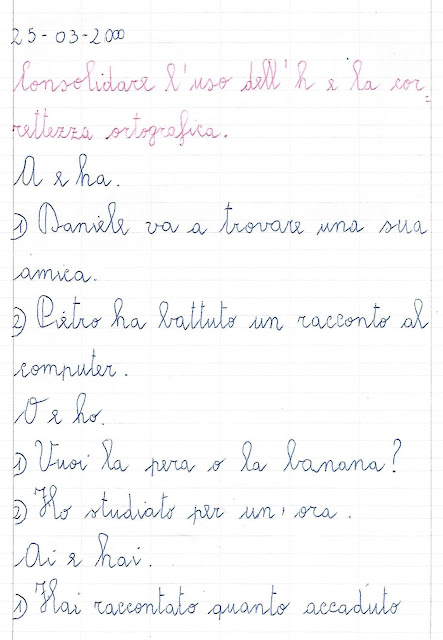 25-03-2000
Consolidare l'uso dell'h e la cor=
rettezza ortografica.
A e ha.
1) Daniele va a trovare una sua
amica.
2) Pietro ha battuto un racconto al
computer.
O e ho.
1) Vuoi la pera o la banana?
2) Ho studiato per un'ora.
Ai e hai.
1) Hai raccontato quanto accaduto